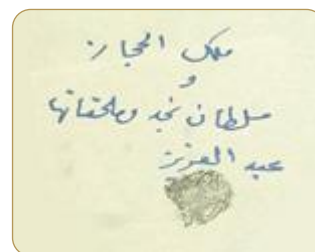 ملك الحجاز
و
سلطان نجد وملحقاتها
عبد العزيز